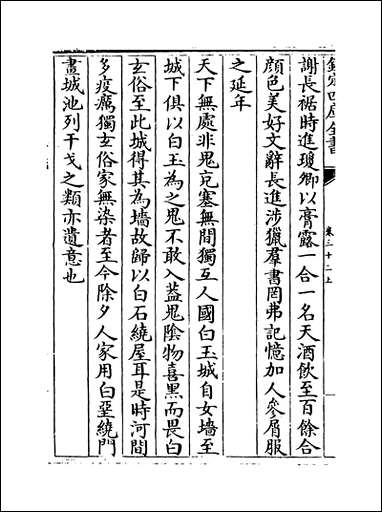 欽定四庫全書
卷三十二上
謝長裾時進瓊卿以膏露一合一名天酒飲至百餘合
顏色美好文辭長進涉獵羣書罔弗記憶加人參屑服
之延年
天下無處非鬼充塞無間獨互人國白玉城自女墻至
城下俱以白玉為之鬼不敢入葢鬼陰物喜黑而畏白
玄俗至此城得其為墻故歸以白石繞屋耳是時河間
多疫癘獨玄俗家無染者至今除夕人家用白堊繞門
畫城池列干戈之類亦遺意也